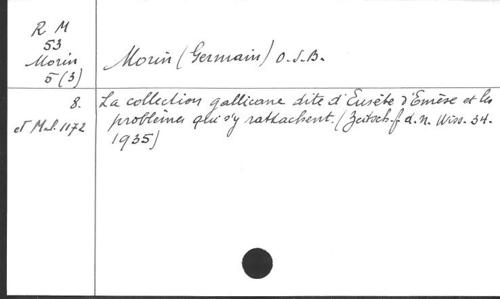 R M
53
Morin
5(3)
Morin (Germain) O.S.B.
8.
et Mel. 1172
La collection gallicane dite d'Eusèbe d'Emèse et les
problèmes qui s'y rattachent. (Zeitsch. f. d. n. Wiss. 34.
1935)